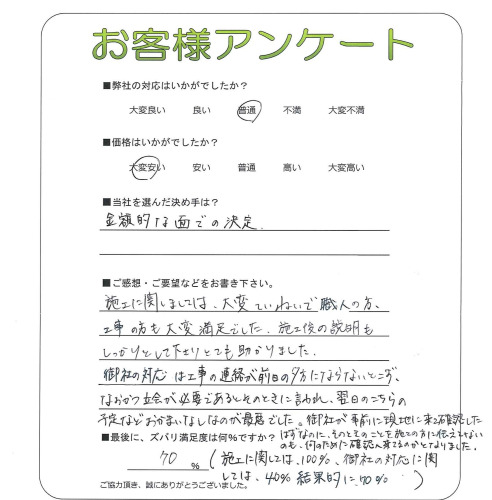 お客様アンケート
■弊社の対応はいかがでしたか？
大変良い 良い 普通 不満 大変不満
■価格はいかがでしたか？
大変安い 安い 普通 高い 大変高い
■当社を選んだ決め手は？
金額的な面での決定.
■ご感想・ご要望などをお書き下さい。
施工に関しましては、大変ていねいで職人の方、
工事の方も大変満足でした. 施工後の説明も
しっかりとして下さりとても助かりました.
御社の対応は工事の連絡が前日の夕方にならないとこず、
なおかつ立会が必要であるとそのときに言われ、翌日のこちらの
予定などおかまいなしなのが最悪でした。御社が事前に現地に来て確認した
はずなのに、そのときのことを施工の方に伝えてない
のも、何のために確認に来てるのかとなりました.
■最後に、ズバリ満足度は何%ですか？
70 %
(施工に関しては、100%、御社の対応に関
しては、40% 結果的に70%)
ご協力頂き、誠にありがとうございました。